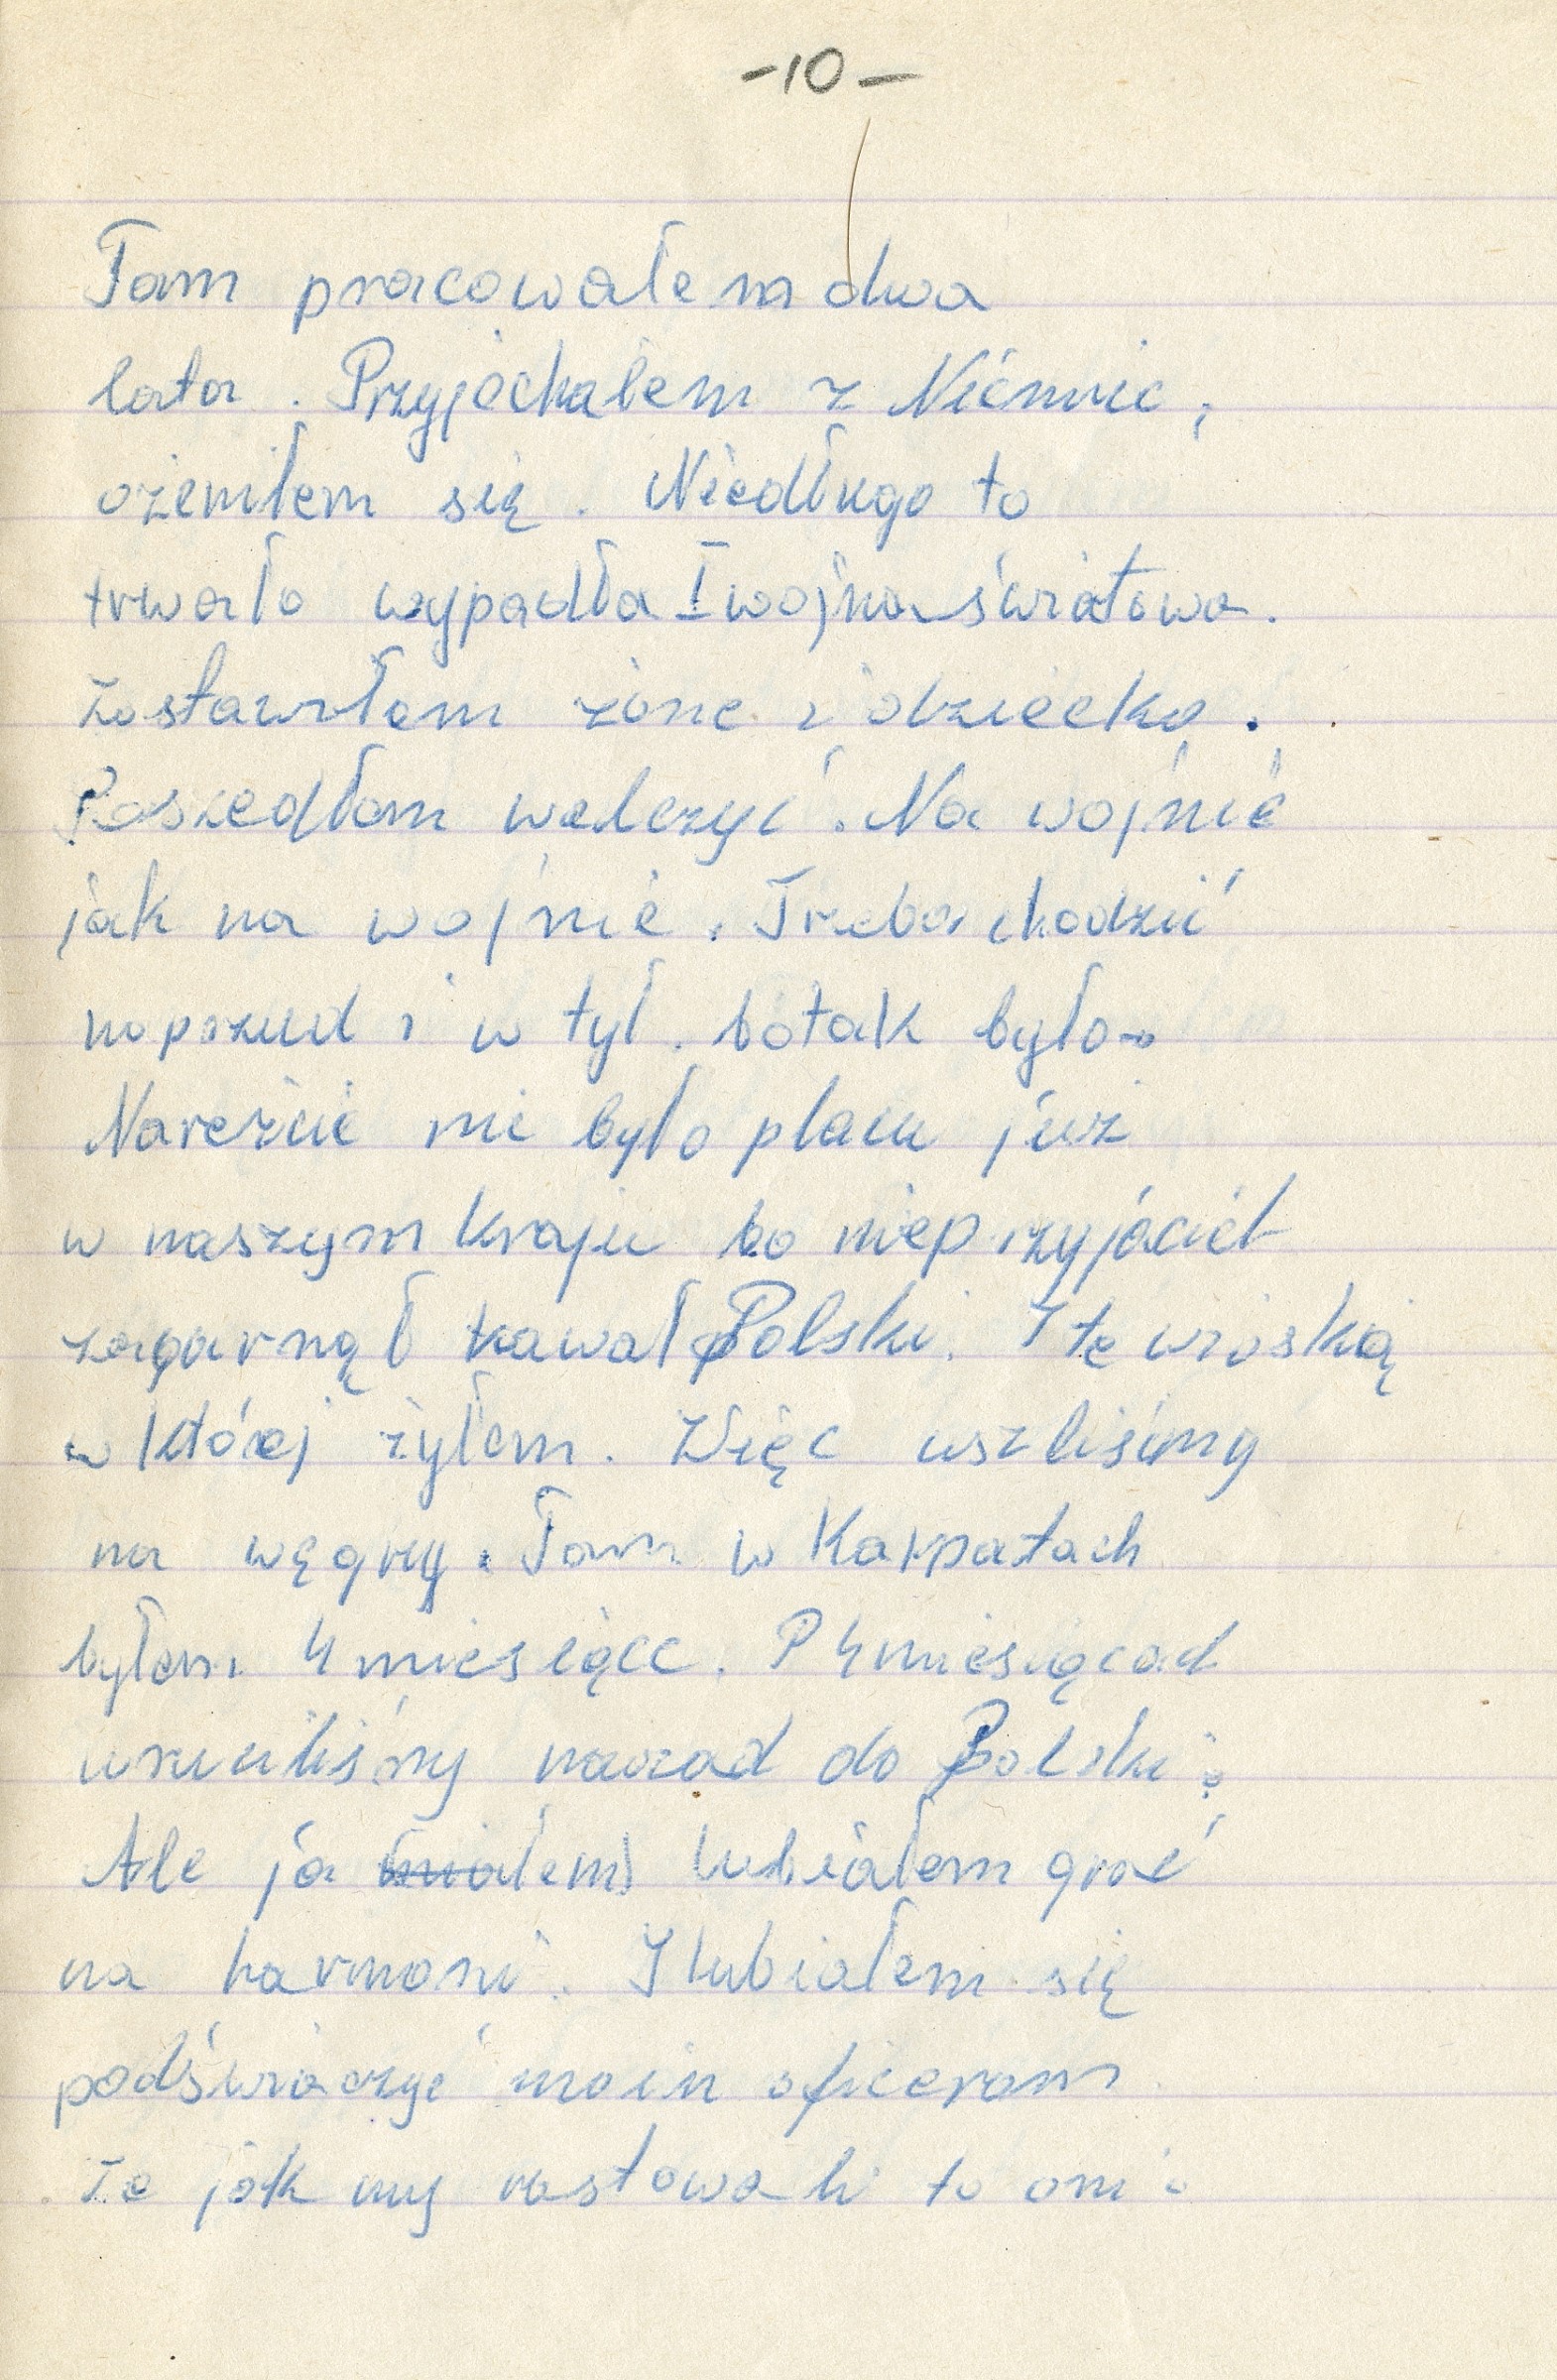 -10-
Tam pracowałem dwa
lata. Przyjechałem z Niemiec,
ożeniłem się. Niedługo to
trwało wypadła I wojna światowa.
Zostawiłem żone i dziecko.
Poszedłem walczyć. Na wojnie
jak na wojnie. Trzeba chodzić
naprzud i w tył. bo tak było
Nareżcie nie było placu już
w naszym kraju bo nieprzyjaciel
zagarnął kawał Polski. I te wioską
w której żyłem. Więc uszliśmy
na węgry. Tam w Karpatach
byłem 4 miesiące. P 4 miesiącad
wruciliśmy nazad do Polski.
Ale ja miałem lubiałem grać
na harmoni. I lubiałem się
podświaczyć moin oficerom
że jak my
to oni